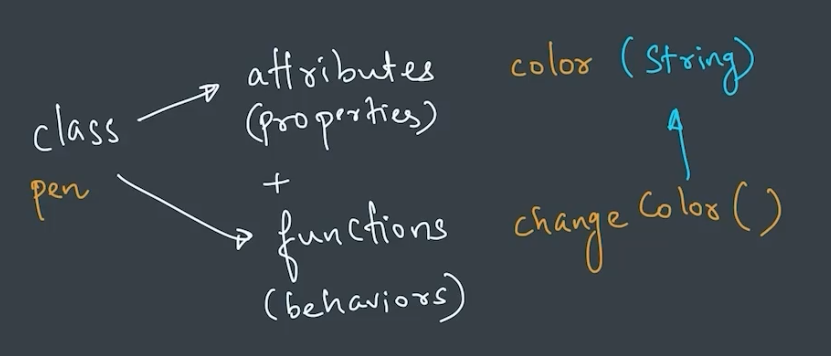 class
pen
attributes
(properties)
+
functions
(behaviors)
color (String)
change Color ()